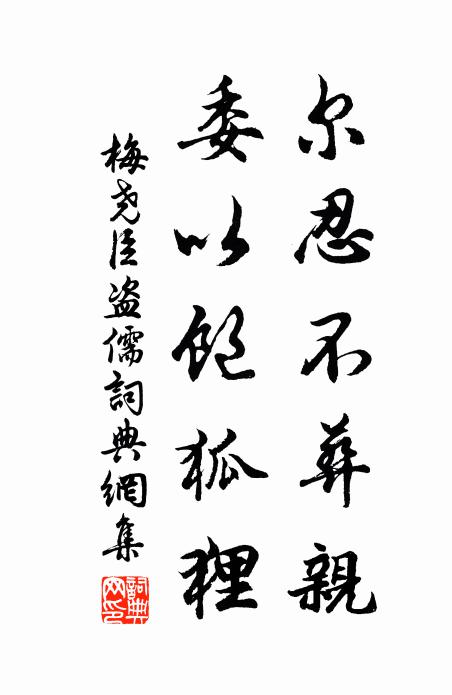 尔忍不葬親
委以飽狐狸
梅尧臣盗儒詞典網集
詞典网印